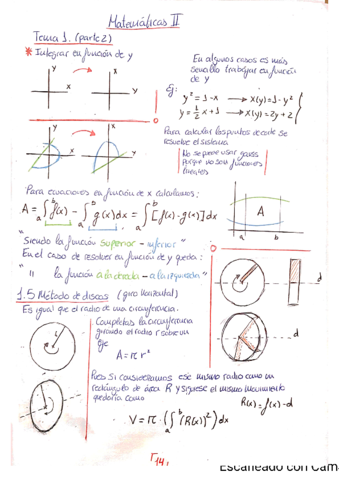 Matemáticas II
Tema 1. (parte 2)
* Integrar en función de y
En algunos casos es más
sencillo trabajar en función
de y
Ej:
y² = 1 - x → X(y) = 1 - y²
y = ½x + 1 → X(y) = 2y + 2
y
x
y
x
Para calcular los puntos de corte se
resuelve el sistema
No se puede usar gauss
porque no son funciones
lineales
Para ecuaciones en función de x calculamos:
A = ∫ₐᵇ f(x) - ∫ₐᵇ g(x) dx = ∫ₐᵇ [f(x) - g(x)] dx
A
a
b
"Siendo la función superior - inferior"
En el caso de resolver en función de y queda:
" la función a la derecha - a la izquierda"
1.5 Método de discos (giro horizontal)
Es igual que el radio de una circunferencia.
Completas la circunferencia
girando el radio r sobre un
eje
A = π r²
d
d
Pero si consideramos ese mismo radio como un
rectángulo de área R y siguiese el mismo movimiento
quedaría como
R(x) = f(x) - d
V = π · (∫ₐᵇ (R(x))²) dx
14
Escaneado con Cam